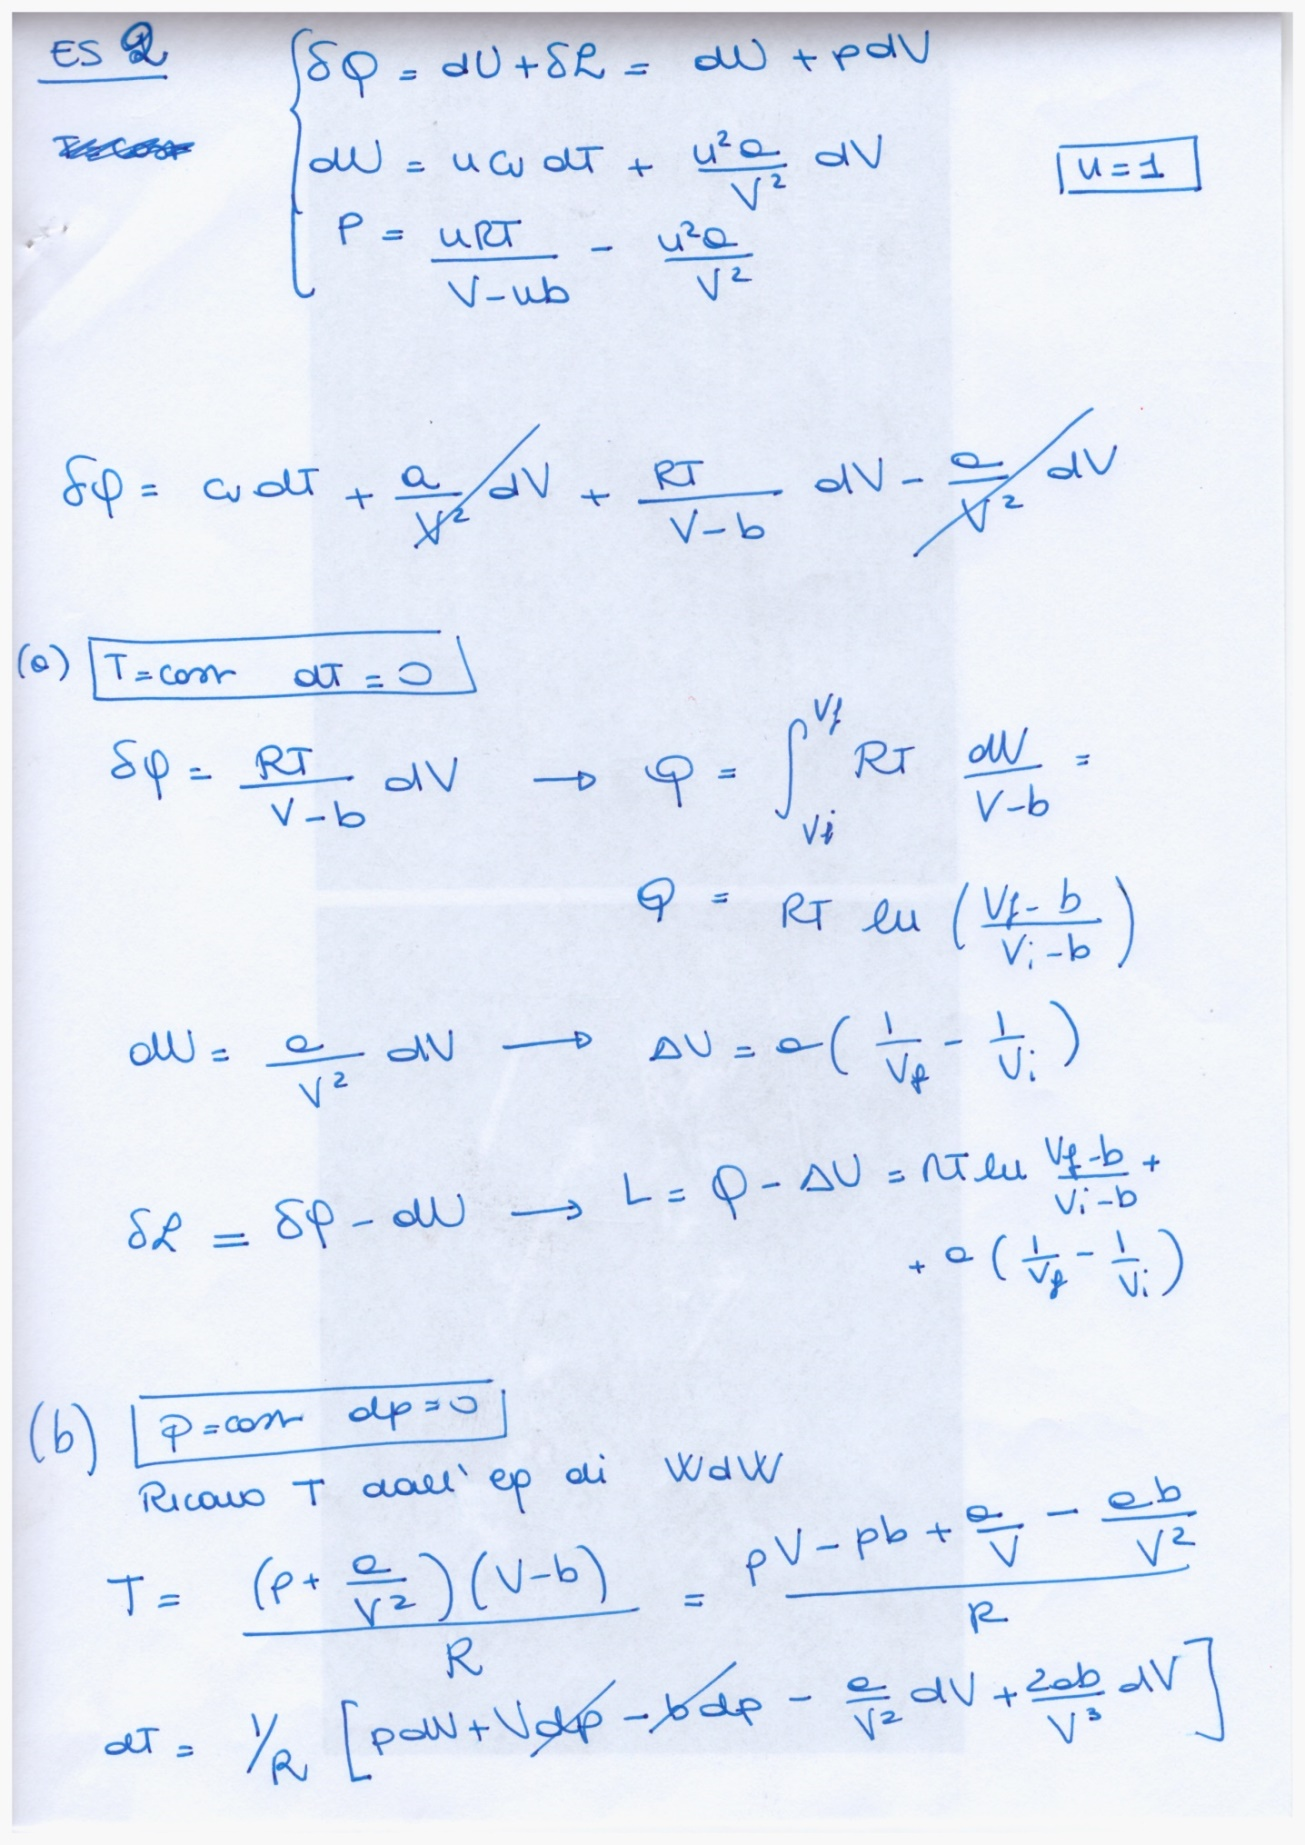 ES 2
δQ = dU + δL = dU + pdV
dU = n cv dT + n²a/V² dV
n = 1
P = nRT/(V-nb) - n²a/V²
δQ = cv dT + a/V² dV + RT/(V-b) dV - a/V² dV
(a) T = cost dT = 0
δQ = RT/(V-b) dV → Q = ∫_Vi^Vf RT dV/(V-b) =
Q = RT ln ((Vf-b)/(Vi-b))
dU = a/V² dV → ΔU = a(1/Vf - 1/Vi)
δL = δQ - dU → L = Q - ΔU = RT ln (Vf-b)/(Vi-b) +
+ a(1/Vf - 1/Vi)
(b) P = cost dp = 0
Ricavo T dall' eq di WdW
T = (p + a/V²)(V-b)/R = (pV - pb + a/V - ab/V²)/R
dT = 1/R [pdV + Vdp - bdp - a/V² dV + 2ab/V³ dV]